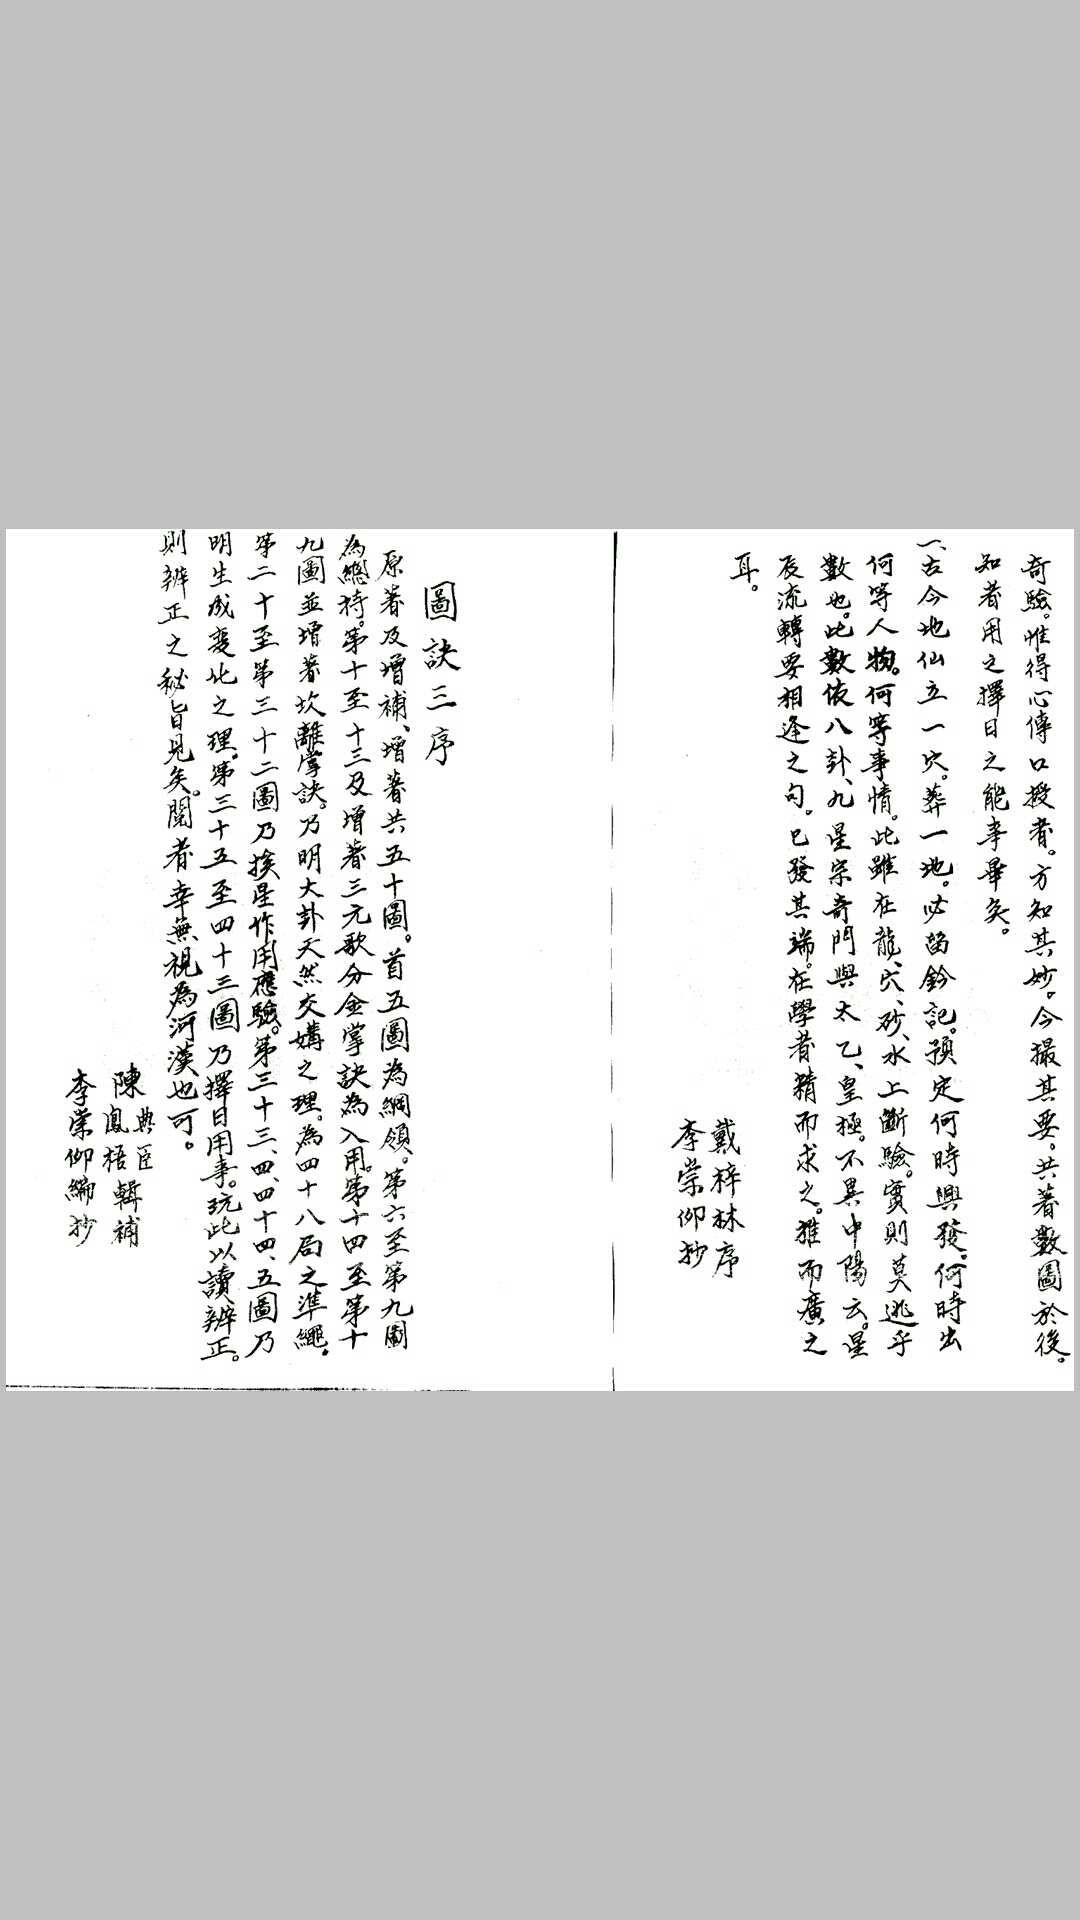 奇驗。惟得心傳口授者。方知其妙。今撮其要。共著數圖於後。
知者用之擇日之能事畢矣。
一、古今地仙立一穴。葬一地。必留鈐記。預定何時興發。何時出
何等人物。何等事情。此雖在龍、穴、砂、水上斷驗。實則莫逃乎
數也。此數依八卦、九星宗奇門與太乙、皇極。不異中陽云。星
辰流轉要相逢之句。已發其端。在學者精而求之。推而廣之
耳。
戴梓林序
李崇仰抄
圖訣三序
原著及增補、增著共五十圖。首五圖為綱領。第六至第九圖
為總持。第十至十三及增著三元歌分金掌訣為入用。第十四至第十
九圖並增著坎離掌訣。乃明大卦天然交媾之理。為四十八局之準繩。
第二十至第三十二圖乃挨星作用應驗。第三十三、四、四十四、五圖乃
明生成變化之理。第三十五至四十三圖乃擇日用事。玩此以讀辨正。
則辨正之秘旨見矣。閱者幸無視為河漢也可。
典臣
陳鳳梧輯補
李崇仰編抄